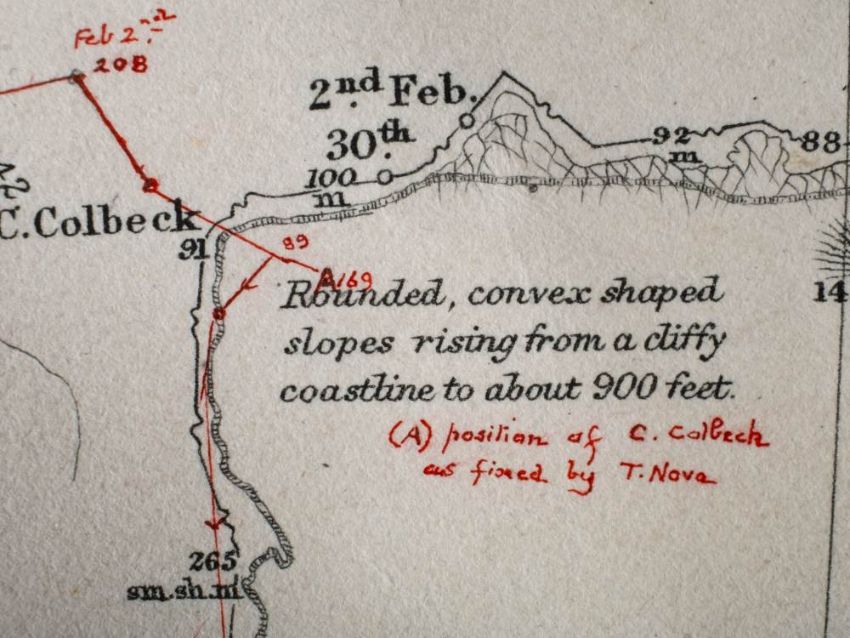 Feb 2nd.
208
2nd Feb.
30th.
100
m
92
m
88
C. Colbeck
91
89
A 169
14
Rounded, convex shaped
slopes rising from a cliffy
coastline to about 900 feet.
(A) position of C. Colbeck
as fixed by T. Nova
265
sm. sh. m